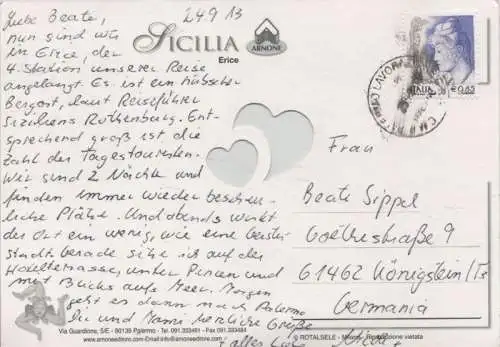 24.9.13
Liebe Beate,
nun sind wir
in Erice, der
4. Station unserer Reise
angelangt. Es ist ein hübscher
Bergort, laut Reiseführer
Siziliens Rothenburg. Ent-
sprechend groß ist die
Zahl der Tagestouristen.
Wir sind 2 Nächte und
finden immer wieder beschau-
liche Plätze. Und abends wirkt
der Ort ein wenig, wie eine Geister-
stadt. Gerade sitze ich auf der
Hotelterrasse, unter Pinien und
mit Blick aufs Meer. Morgen
geht es dann nach Palermo
Dir und Mami herzliche Grüße
+ alles Liebe
SICILIA
Erice
ARNONE
ITALIA
€0,85
LAVORAZIONE
Frau
Beate Sippel
Goethestraße 9
61462 Königstein/Ts
Germania
Via Guardione, 5/E - 90139 Palermo - Tel. 091.333461 - Fax 091.333484
www.arnoneeditore.com - Email info@arnoneeditore.com
© ROTALSELE - Milano - Riproduzione vietata